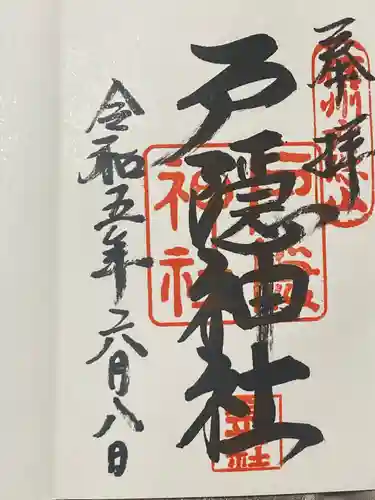 奉拝
戸隠神社
令和五年六月八日
戸隠神社